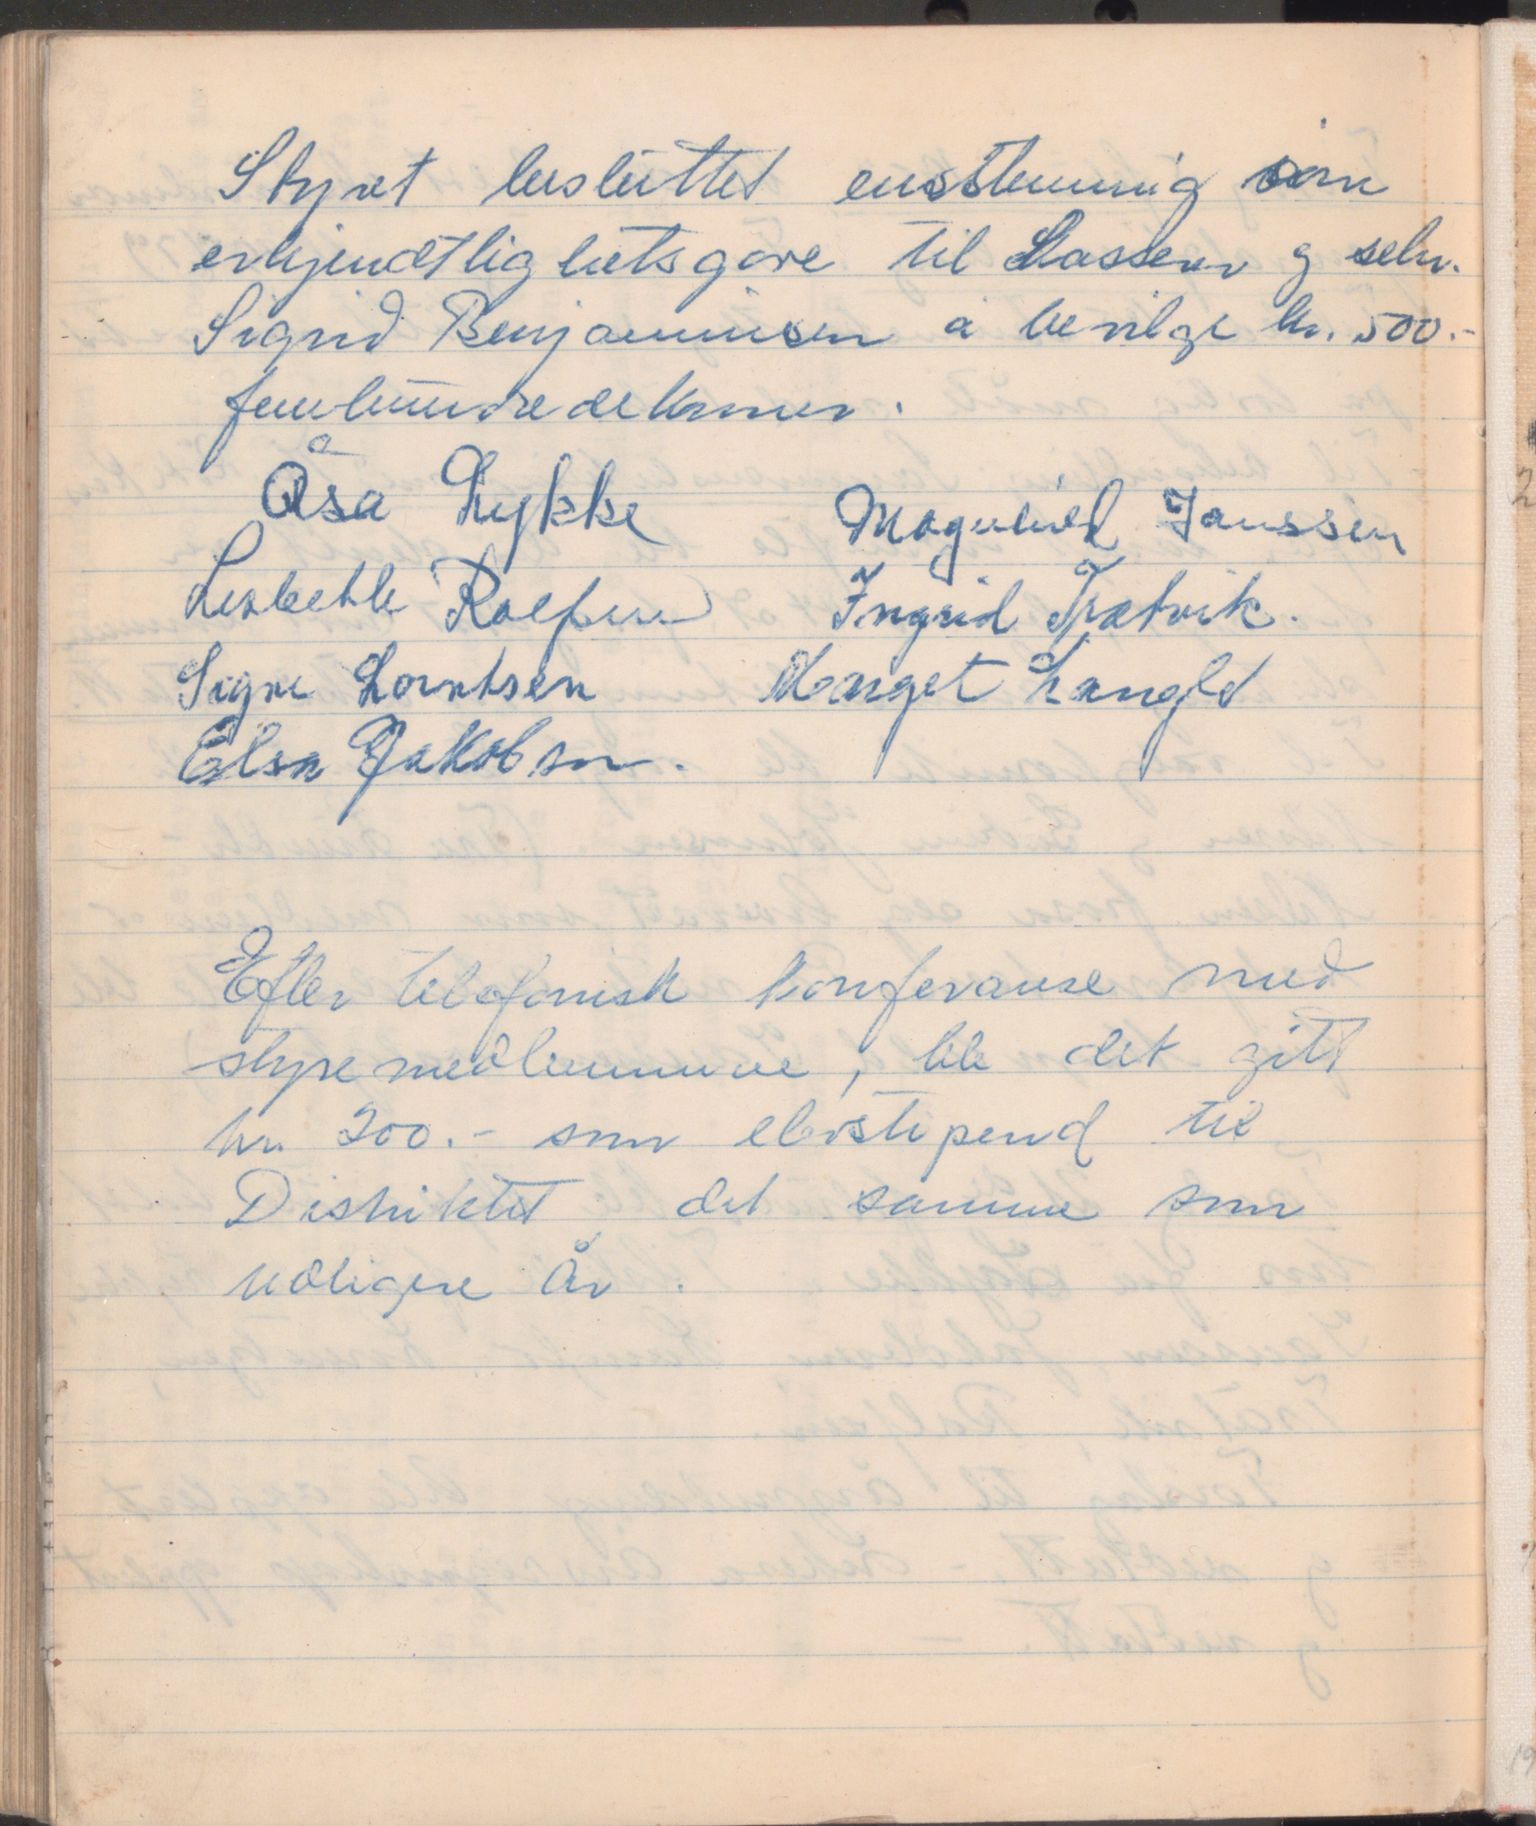 Styret besluttet enstemmig som
erkjendtlighetsgave til kasserer og sekr.
Sigrid Benjaminsen å bevilge kr. 500.-
femhundredekroner.
Åsa Lykke Magnhild Janssen
Lisbeth Rolfsen Ingrid Trætvik.
Signe Lorntsen Marget Langli
Elsa Jakobsen.
Efter telefonisk konferanse med
styremedlemmene, ble det gitt
kr. 200.- som elevstipend til
Distriktet det samme som
tidligere år.